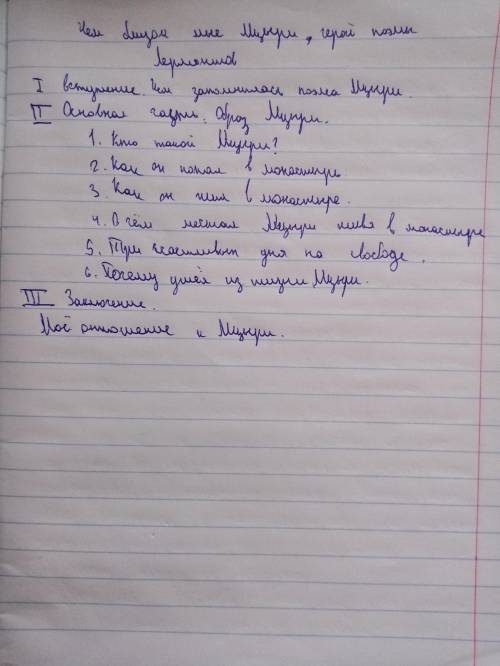 Чем близок мне Мцыри, герой поэмы
Лермонтов
I вступление. Чем запомнилась поэма Мцыри.
II Основная часть. Образ Мцыри.
1. Кто такой Мцыри?
2. Как он попал в монастырь
3. Как он жил в монастыре.
4. О чём мечтал Мцыри живя в монастыре
5. Три счастливых дня на свободе.
6. Почему ушёл из жизни Мцыри.
III Заключение.
Моё отношение к Мцыри.